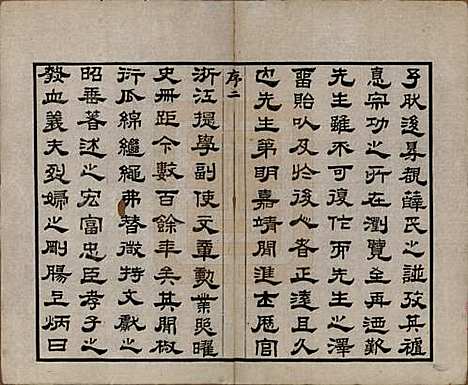 予然後得觀薛氏之譜攷其祖
悳宗功之所在瀏覽至再迺歎
先生雖不可復作而先生之澤
畱貽以及於後人者正遠且久
也先生第明嘉靖閒進士歷官
序二
浙江提學副使文章勳業照曜
史冊距今數百餘年矣其開椒
衍瓜綿繼繩弗替微特文獻之
昭垂著述之宏富忠臣孝子之
熱血義夫烈婦之剛腸足炳日